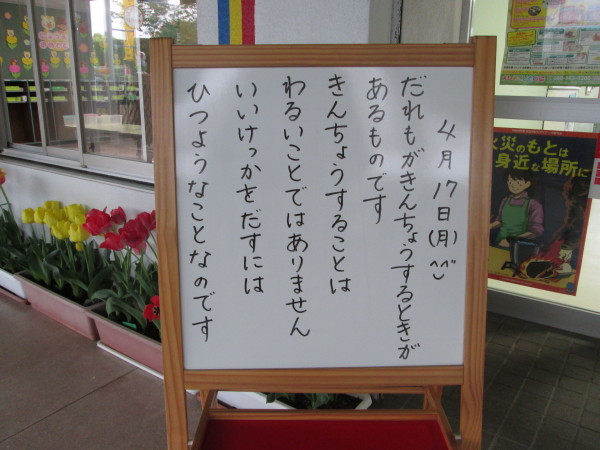 4月17日(月)
だれもがきんちょうするときが
あるものです
きんちょうすることは
わるいことではありません
いいけっかをだすには
ひつようなことなのです
火災のもとは
身近な場所に